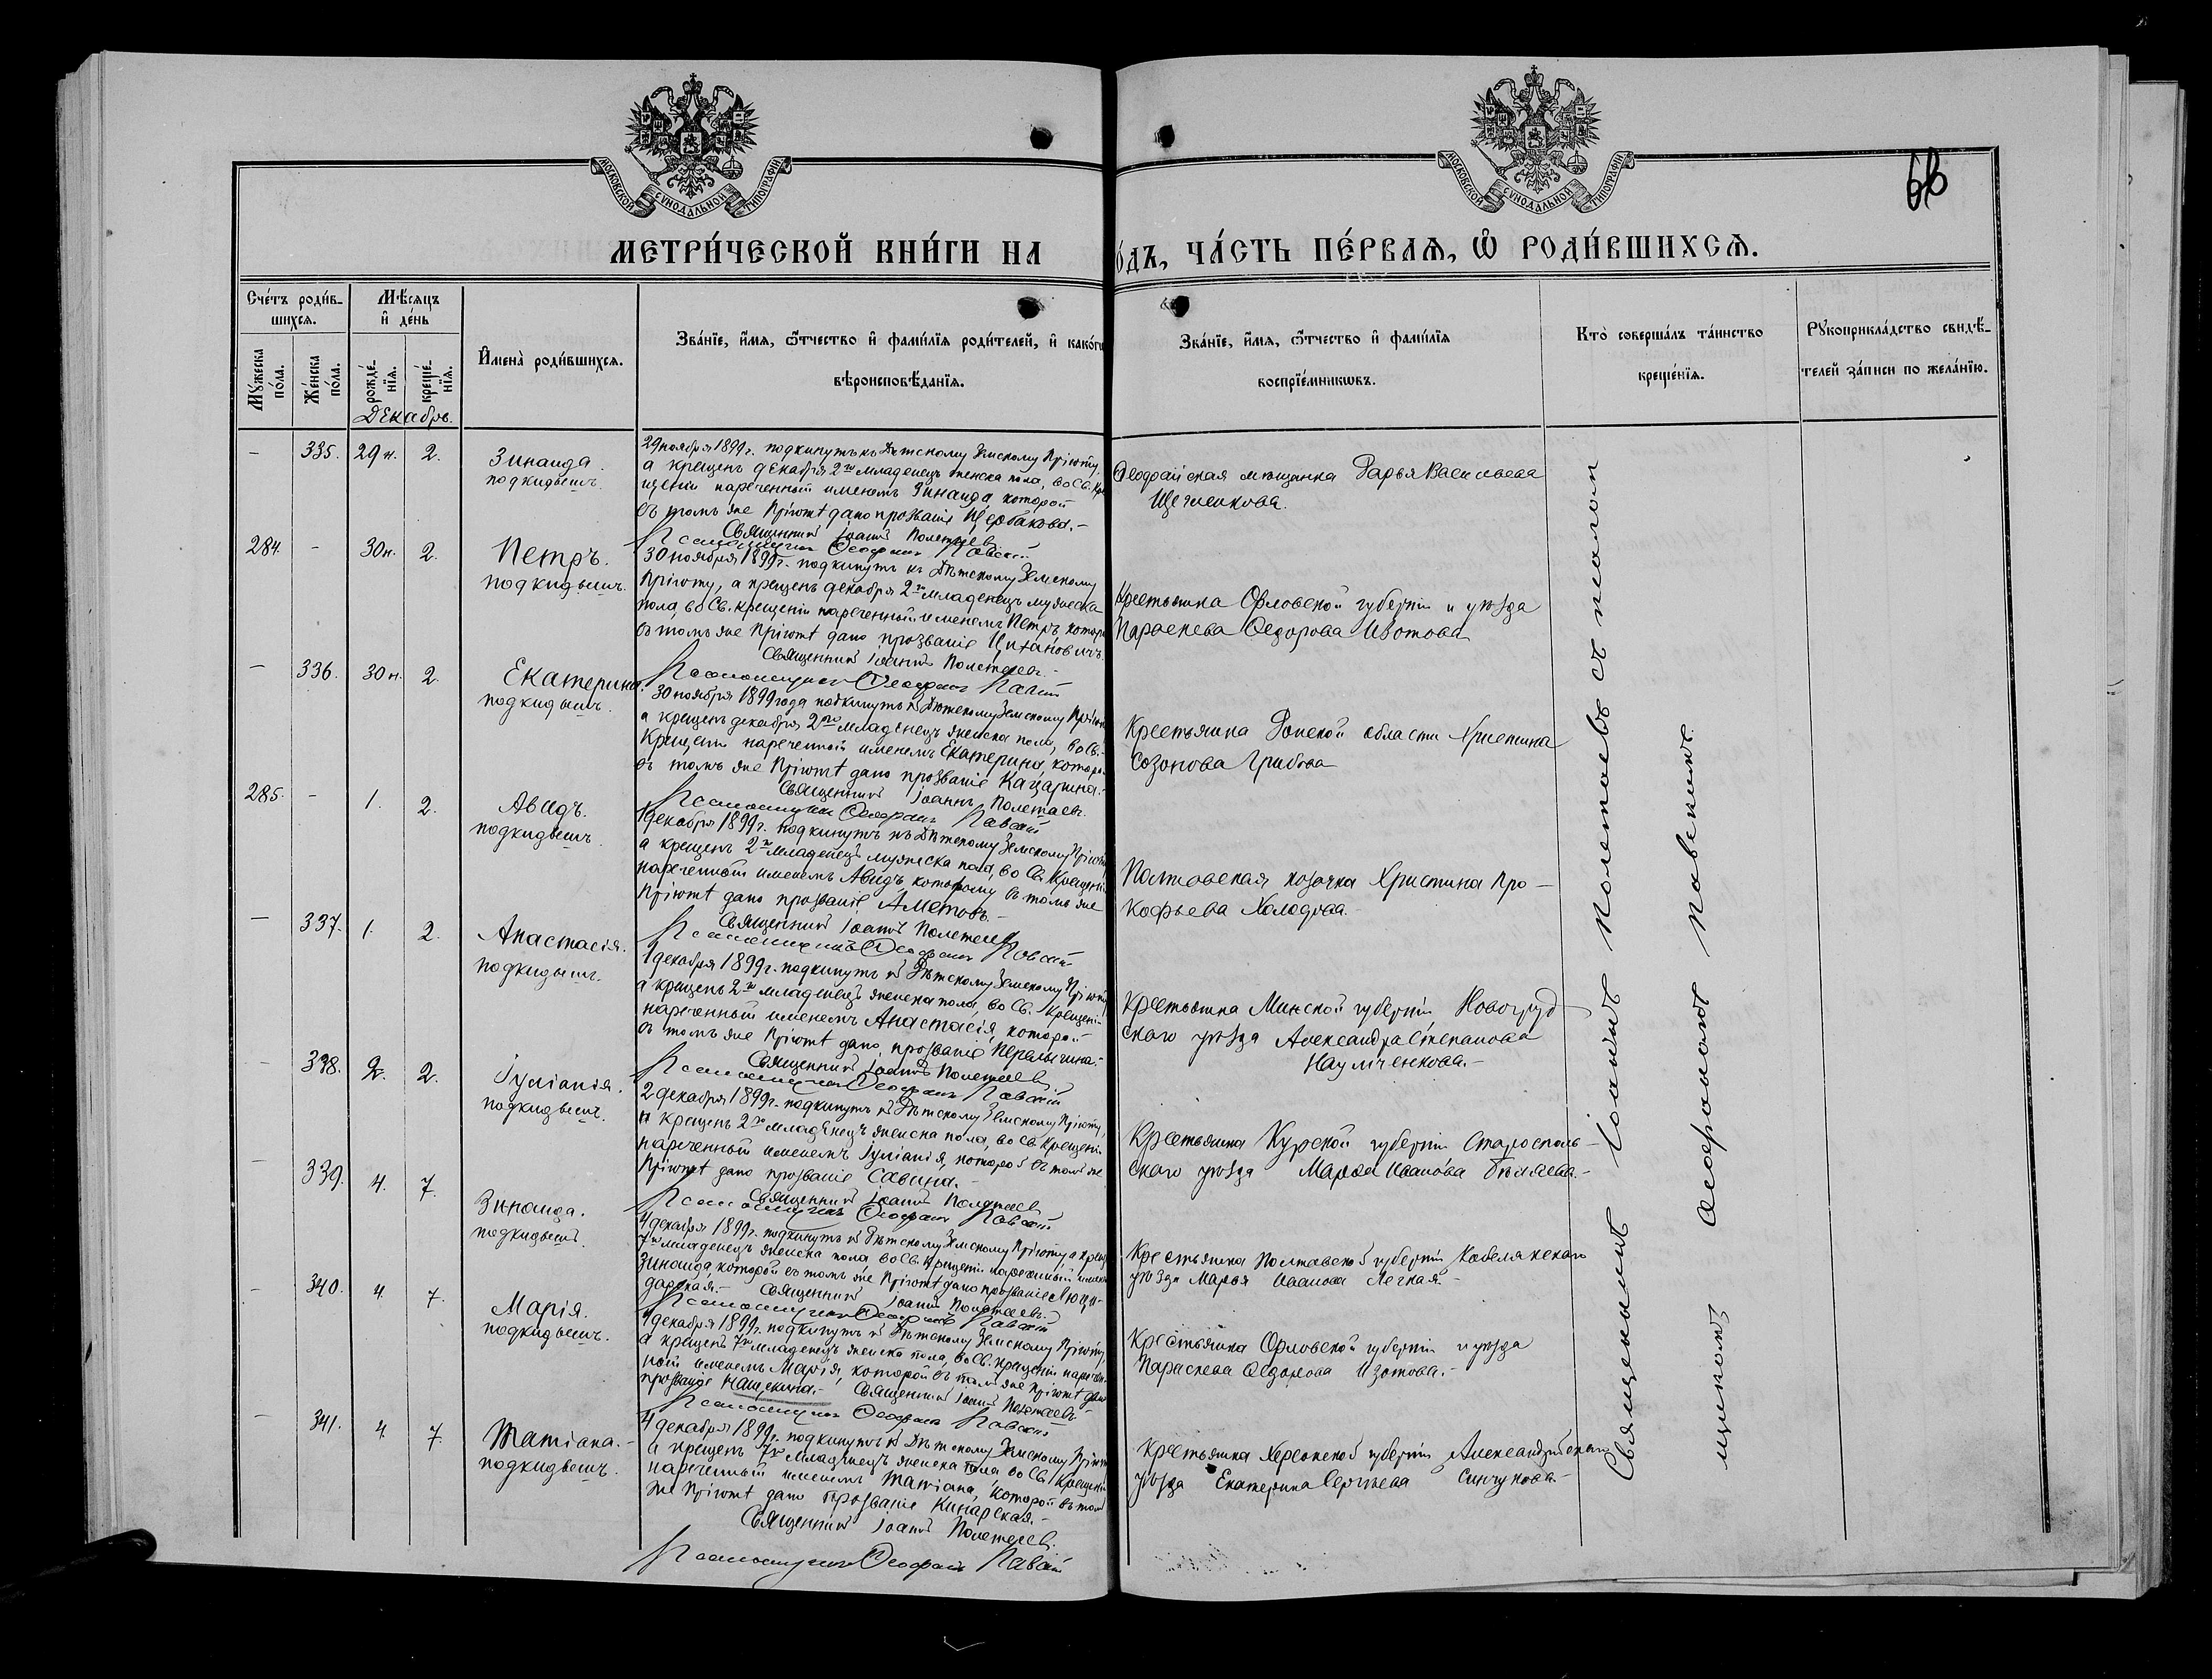 МОСКОВСКОЙ СѴНОДАЛЬНОЙ ТИПОГРАФІИ
МОСКОВСКОЙ СѴНОДАЛЬНОЙ ТИПОГРАФІИ
МЕТРИ́ЧЕСКОЙ КНИ́ГИ НА
О́ДЪ, ЧА́СТЬ ПЕ́РВАЯ, Ѽ РОДИ́ВШИХСЯ.
Сче́тъ роди́в-
шихся.
Мꙋ́жеска по́ла.
Же́нска по́ла.
Мѣ́сяцъ
и҆ де́нь
рожде́-
нїя.
креще́-
нїя.
Декабрь.
И҆мена̀ роди́вшихся.
Зва́нїе, и҆́мя, ѻ҆́тчество и҆ фами́лїя роди́телей, и҆ како́гѡ
вѣроисповѣ́данїя.
Зва́нїе, и҆́мя, ѻ҆́тчество и҆ фами́лїя
воспрїе́мникѡвъ.
Кто̀ соверша́лъ та́инство
креще́нїя.
Рꙋкоприкла́дство свидѣ́-
телей за́писи по жела́нїю.
- 335. 29 н. 2.
Зинаида.
подкидышъ.
29 ноября 1899 г. подкинутъ къ Дѣтскому Земскому Пріюту,
а крещенъ декабря 2го младенецъ женска пола, во Св. Кре
щеніи нареченный именемъ Зинаида, которой
въ томъ же Пріютѣ дано прозваніе Щербакова.-
Священникъ Іоаннъ Полетаевъ
Псаломщикъ Ѳеофанъ Павскій
Ѳеодосійская мѣщанка Дарья Васильева
284. - 30 н. 2.
Петръ.
подкидышъ.
30 ноября 1899 г. подкинутъ къ Дѣтскому Земскому
Пріюту, а крещенъ декабря 2го младенецъ мужеска
пола, во Св. крещеніи нареченный именемъ Петръ, котор
въ томъ же Пріютѣ дано прозваніе Цихановичъ.
Священникъ Іоаннъ Полетаевъ.-
Псаломщикъ Ѳеофанъ Павскій
Крестьянка Орловской губерніи и уѣзда
Параскева Ѳедорова Изотова
- 336. 30 н. 2.
Екатерина.
подкидышъ.
30 ноября 1899 года подкинутъ къ Дѣтскому Земскому Пріют
а крещенъ декабря 2го младенецъ женска пола, во Св.
Крещеніи нареченный именемъ Екатерина, котор
въ томъ же Пріютѣ дано прозваніе Кацарина.-
Священникъ Іоаннъ Полетаевъ.
Псаломщикъ Ѳеофанъ Павскій
Крестьянка Донской области Христина
Созонова Грибова
285. - 1. 2.
Авидъ.
подкидышъ.
1 декабря 1899 г. подкинутъ къ Дѣтскому Земскому Пріюту
а крещенъ 2го младенецъ мужеска пола, во Св. Крещені
нареченный именемъ Авидъ, которому въ томъ же
Пріютѣ дано прозваніе Аметовъ.-
Священникъ Іоаннъ Полетаевъ
Псаломщикъ Ѳеофанъ Павскій
Полтавская козачка Христина Про-
кофьева Холодова.
- 337. 1. 2.
Анастасія.
подкидышъ.
1 декабря 1899 г. подкинутъ къ Дѣтскому Земскому Пріюту
а крещенъ 2го младенецъ женска пола, во Св. Крещені
нареченный именемъ Анастасія, которой
въ томъ же Пріютѣ дано прозваніе Перелыгина.-
Священникъ Іоаннъ Полетаевъ.
Псаломщикъ Ѳеофанъ Павскій
Крестьянка Минской губерніи Новогруд
скаго уѣзда Александра Степанова
Наумченкова.-
- 338. 2. 2.
Іуліанія.
подкидышъ.
2 декабря 1899 г. подкинутъ къ Дѣтскому Земскому Пріюту,
а крещенъ 2го младенецъ женска пола, во Св. Крещеніи
нареченный именемъ Іуліанія, которой въ томъ же
Пріютѣ дано прозваніе Савина.-
Священникъ Іоаннъ Полетаевъ
Псаломщикъ Ѳеофанъ Павскій
Крестьянка Курской губерніи Староосколь-
скаго уѣзда Марѳа Иванова Бѣляева.-
- 339. 4. 7.
Зинаида.
подкидышъ.
4 декабря 1899 г. подкинутъ къ Дѣтскому Земскому Пріюту, а крещ
7го младенецъ женска пола, во Св. Крещеніи нареченный имен
Зинаида, которой въ томъ же Пріютѣ дано прозваніе
Священникъ Іоаннъ Полетаевъ.
Псаломщикъ Ѳеофанъ Павскій
Крестьянка Полтавской губерніи Кобелякскаго
уѣзда Марья Иванова Легкая.-
- 340. 4. 7.
Марія.
подкидышъ.
4 декабря 1899 г. подкинутъ къ Дѣтскому Земскому Пріюту,
а крещенъ 7го младенецъ женска пола, во Св. крещеніи наречен
ный именемъ Марія, которой въ томъ же Пріютѣ дано
прозваніе Нащекина.- Священникъ Іоаннъ Полетаевъ.
Псаломщикъ Ѳеофанъ Павскій
Крестьянка Орловской губерніи и уѣзда
Параскева Ѳедорова Изотова.-
- 341. 4. 7.
Татіана.-
подкидышъ.
4 декабря 1899 г. подкинутъ къ Дѣтскому Земскому Пріюту
а крещенъ 7го младенецъ женска пола во Св. Крещені
нареченный именемъ Татіана, которой въ томъ
же Пріютѣ дано прозваніе Кинарская.-
Священникъ Іоаннъ Полетаевъ.
Псаломщикъ Ѳеофанъ Павскій
Крестьянка Херсонской губерніи Александрійскаго
уѣзда Екатерина Сергѣева
Священникъ Іоаннъ Полетаевъ съ псалом
щикомъ Ѳеофаномъ Павскимъ.